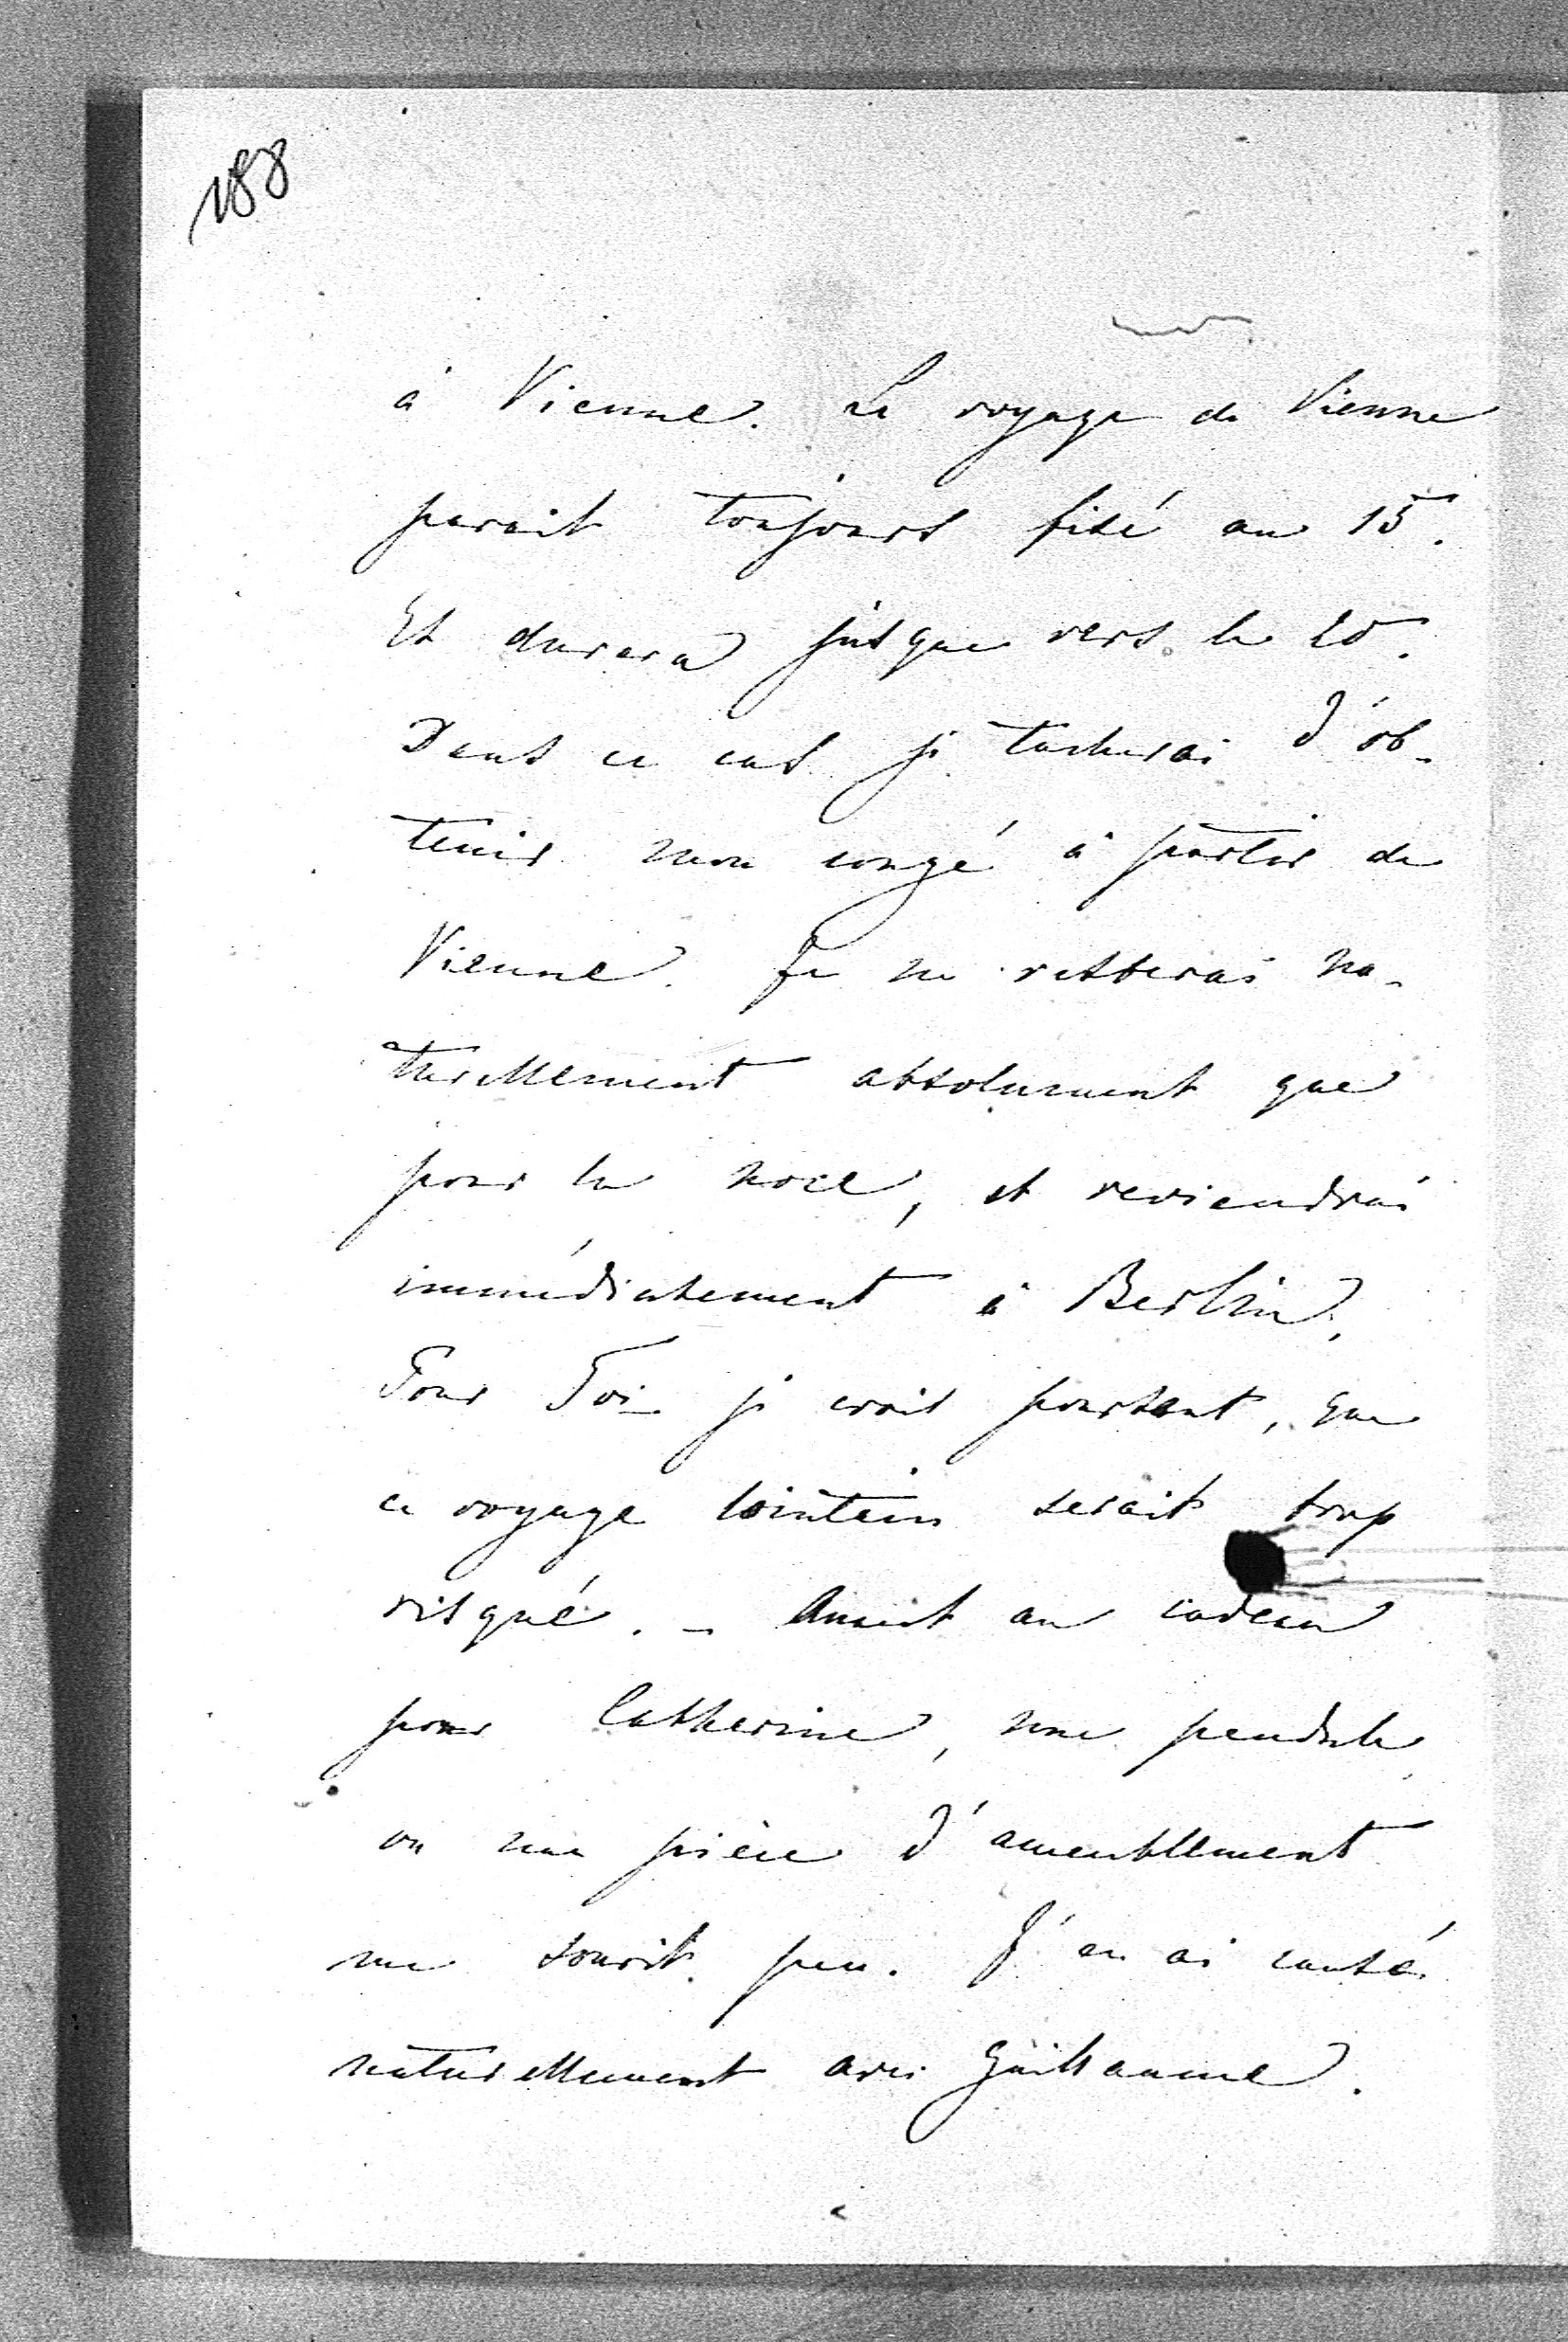 188
à Vienne. Le voyage de Vienne
parait toujours fixé au 15.
Et durera jusque vers le 20.
Dans ce cas je tacherai d'ob-
tenir mon congé à partir de
Vienne. Je ne resterai na-
turellement absolument que
pour la noce, et reviendrai
immédiatement à Berlin.
Pour Toi je crois pourtant, que
ce voyage lointain serait trop
risqué. - Quant au cadeau
pour Catherine, une pendule
ou une pièce d'ameublement
me sourit peu. J'en ai causé
naturellement avec Guillaume.